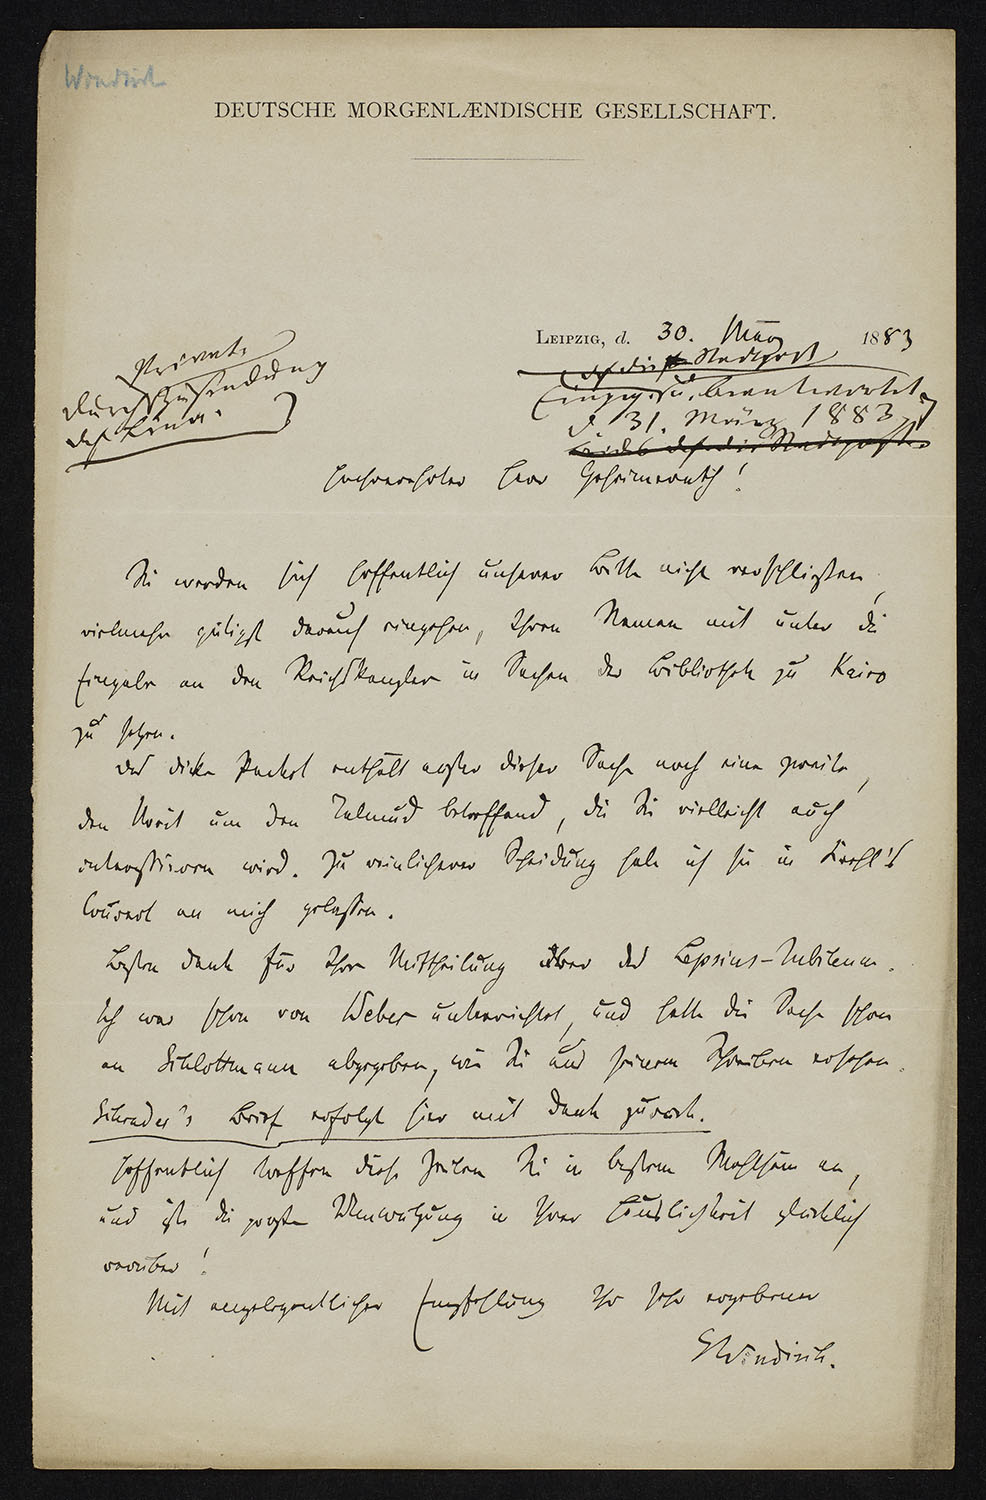 Windisch
DEUTSCHE MORGENLÆNDISCHE GESELLSCHAFT.
Leipzig, d. 30. März 1883
Privat.
durch Zusendung
dch die Stadtpost
Eingeg. u. beantwortet
d. 31. März 1883
dch die Stadtpost
Hochverehrter Herr Geheimerath!
Sie werden sich hoffentlich unserer Bitte nicht verschließen,
vielmehr gütigst darauf eingehen, Ihren Namen mit unter die
Eingabe an den Reichskanzler in Sachen der Bibliothek zu Kairo
zu setzen.
Das dicke Packet enthält außer dieser Sache noch eine zweite,
den Streit um den Talmud betreffend, die Sie vielleicht auch
interessiren wird. Zu reinlicherer Scheidung habe ich sie in Krehl's
Couvert an mich gelassen.
Besten Dank für Ihre Mittheilung über das Lepsius-Jubiläum.
Ich war schon von Weber unterrichtet, und hatte die Sache schon
an Schlottmann abgegeben, wie Sie aus seinem Schreiben ersehen.
Schrader's Brief erfolgt hier mit Dank zurück.
Hoffentlich treffen diese Zeilen Sie in bestem Wohlsein an,
und ist die große Umwälzung in Ihrer Häuslichkeit glücklich
vorüber!
Mit angelegentlicher Empfehlung Ihr sehr ergebener
EWindisch.